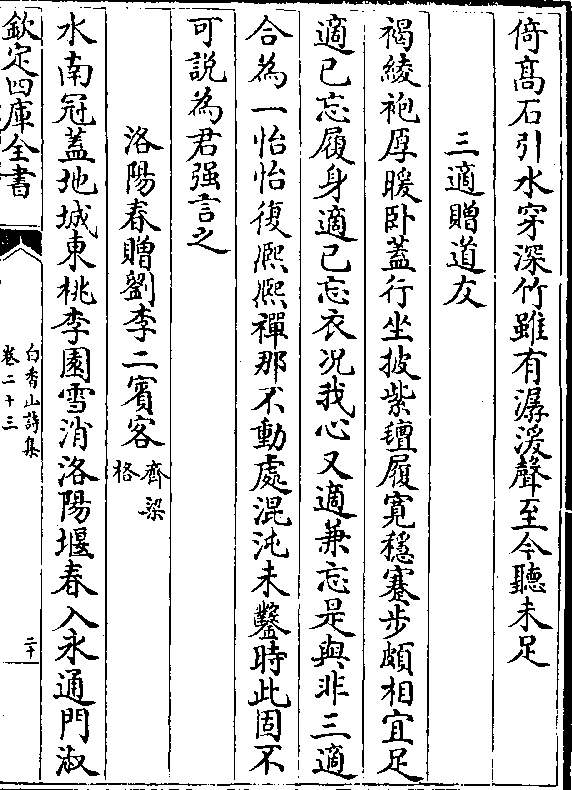 倚高石引水穿深竹雖有潺湲聲至今聽未足
三適贈道友
褐綾袍厚暖卧蓋行坐披紫氊履寛穩蹇步頗相宜足
適已忘履身適已忘衣况我心又適兼忘是與非三適
合為一怡怡復熈熈禪那不動處混沌未鑿時此固不
可説為君强言之
洛陽春贈劉李二賓客齊梁格
水南冠蓋地城東桃李園雪消洛陽堰春入永通門淑
欽定四庫全書
白香山詩集
卷二十三
二十